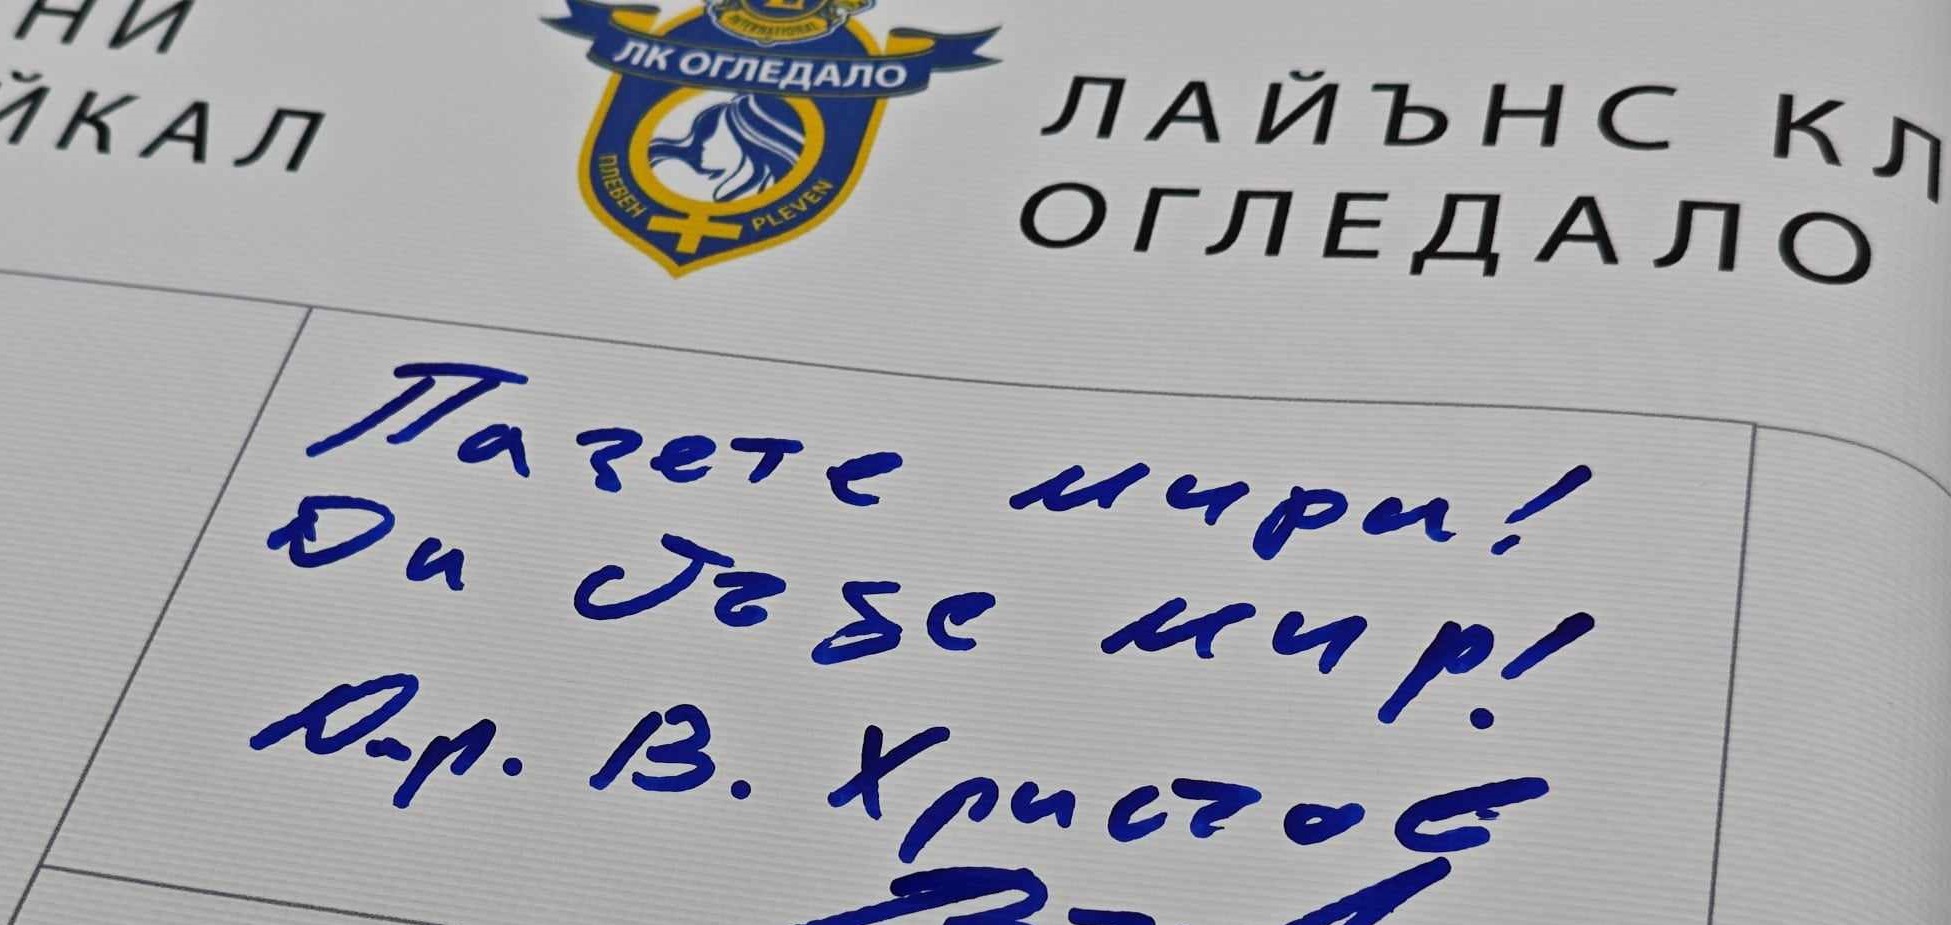 НИ
ЙКАЛ
INTERNATIONAL
ЛК ОГЛЕДАЛО
ПЛЕВЕН
PLEVEN
ЛАЙЪНС КЛ
ОГЛЕДАЛО
Пазете мира!
Да бъде мир!
Д-р. В. Христов